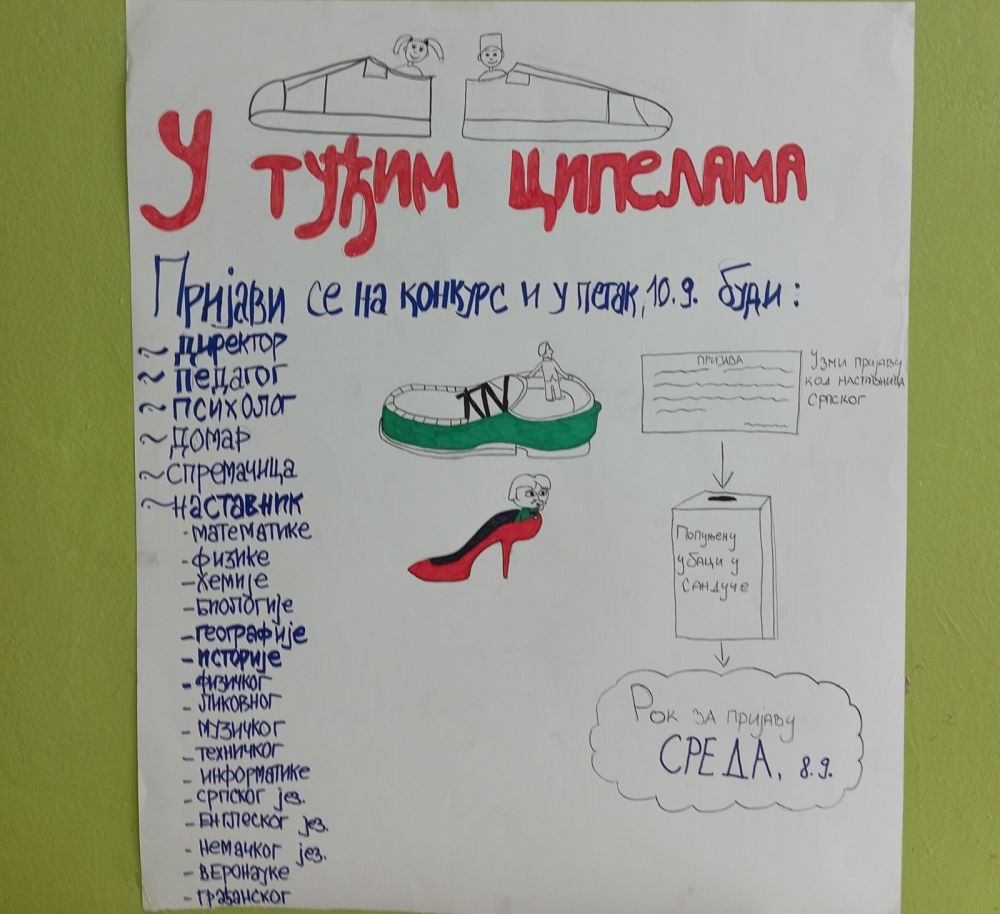 У туђим ципелама
Пријави се на конкурс и у петак, 10.9. буди:
~ директор
~ педагог
~ психолог
~ домар
~ спремачица
~ наставник
- математике
- физике
- хемије
- биологије
- географије
- историје
- физичког
- ликовног
- музичког
- техничког
- информатике
- српског јез.
- енглеског јез.
- немачког јез.
- веронауке
- грађанског
ПРИЈАВА
Узми пријаву
код наставница
српског
Попуњену
убаци у
сандуче
Рок за пријаву
СРЕДА, 8.9.